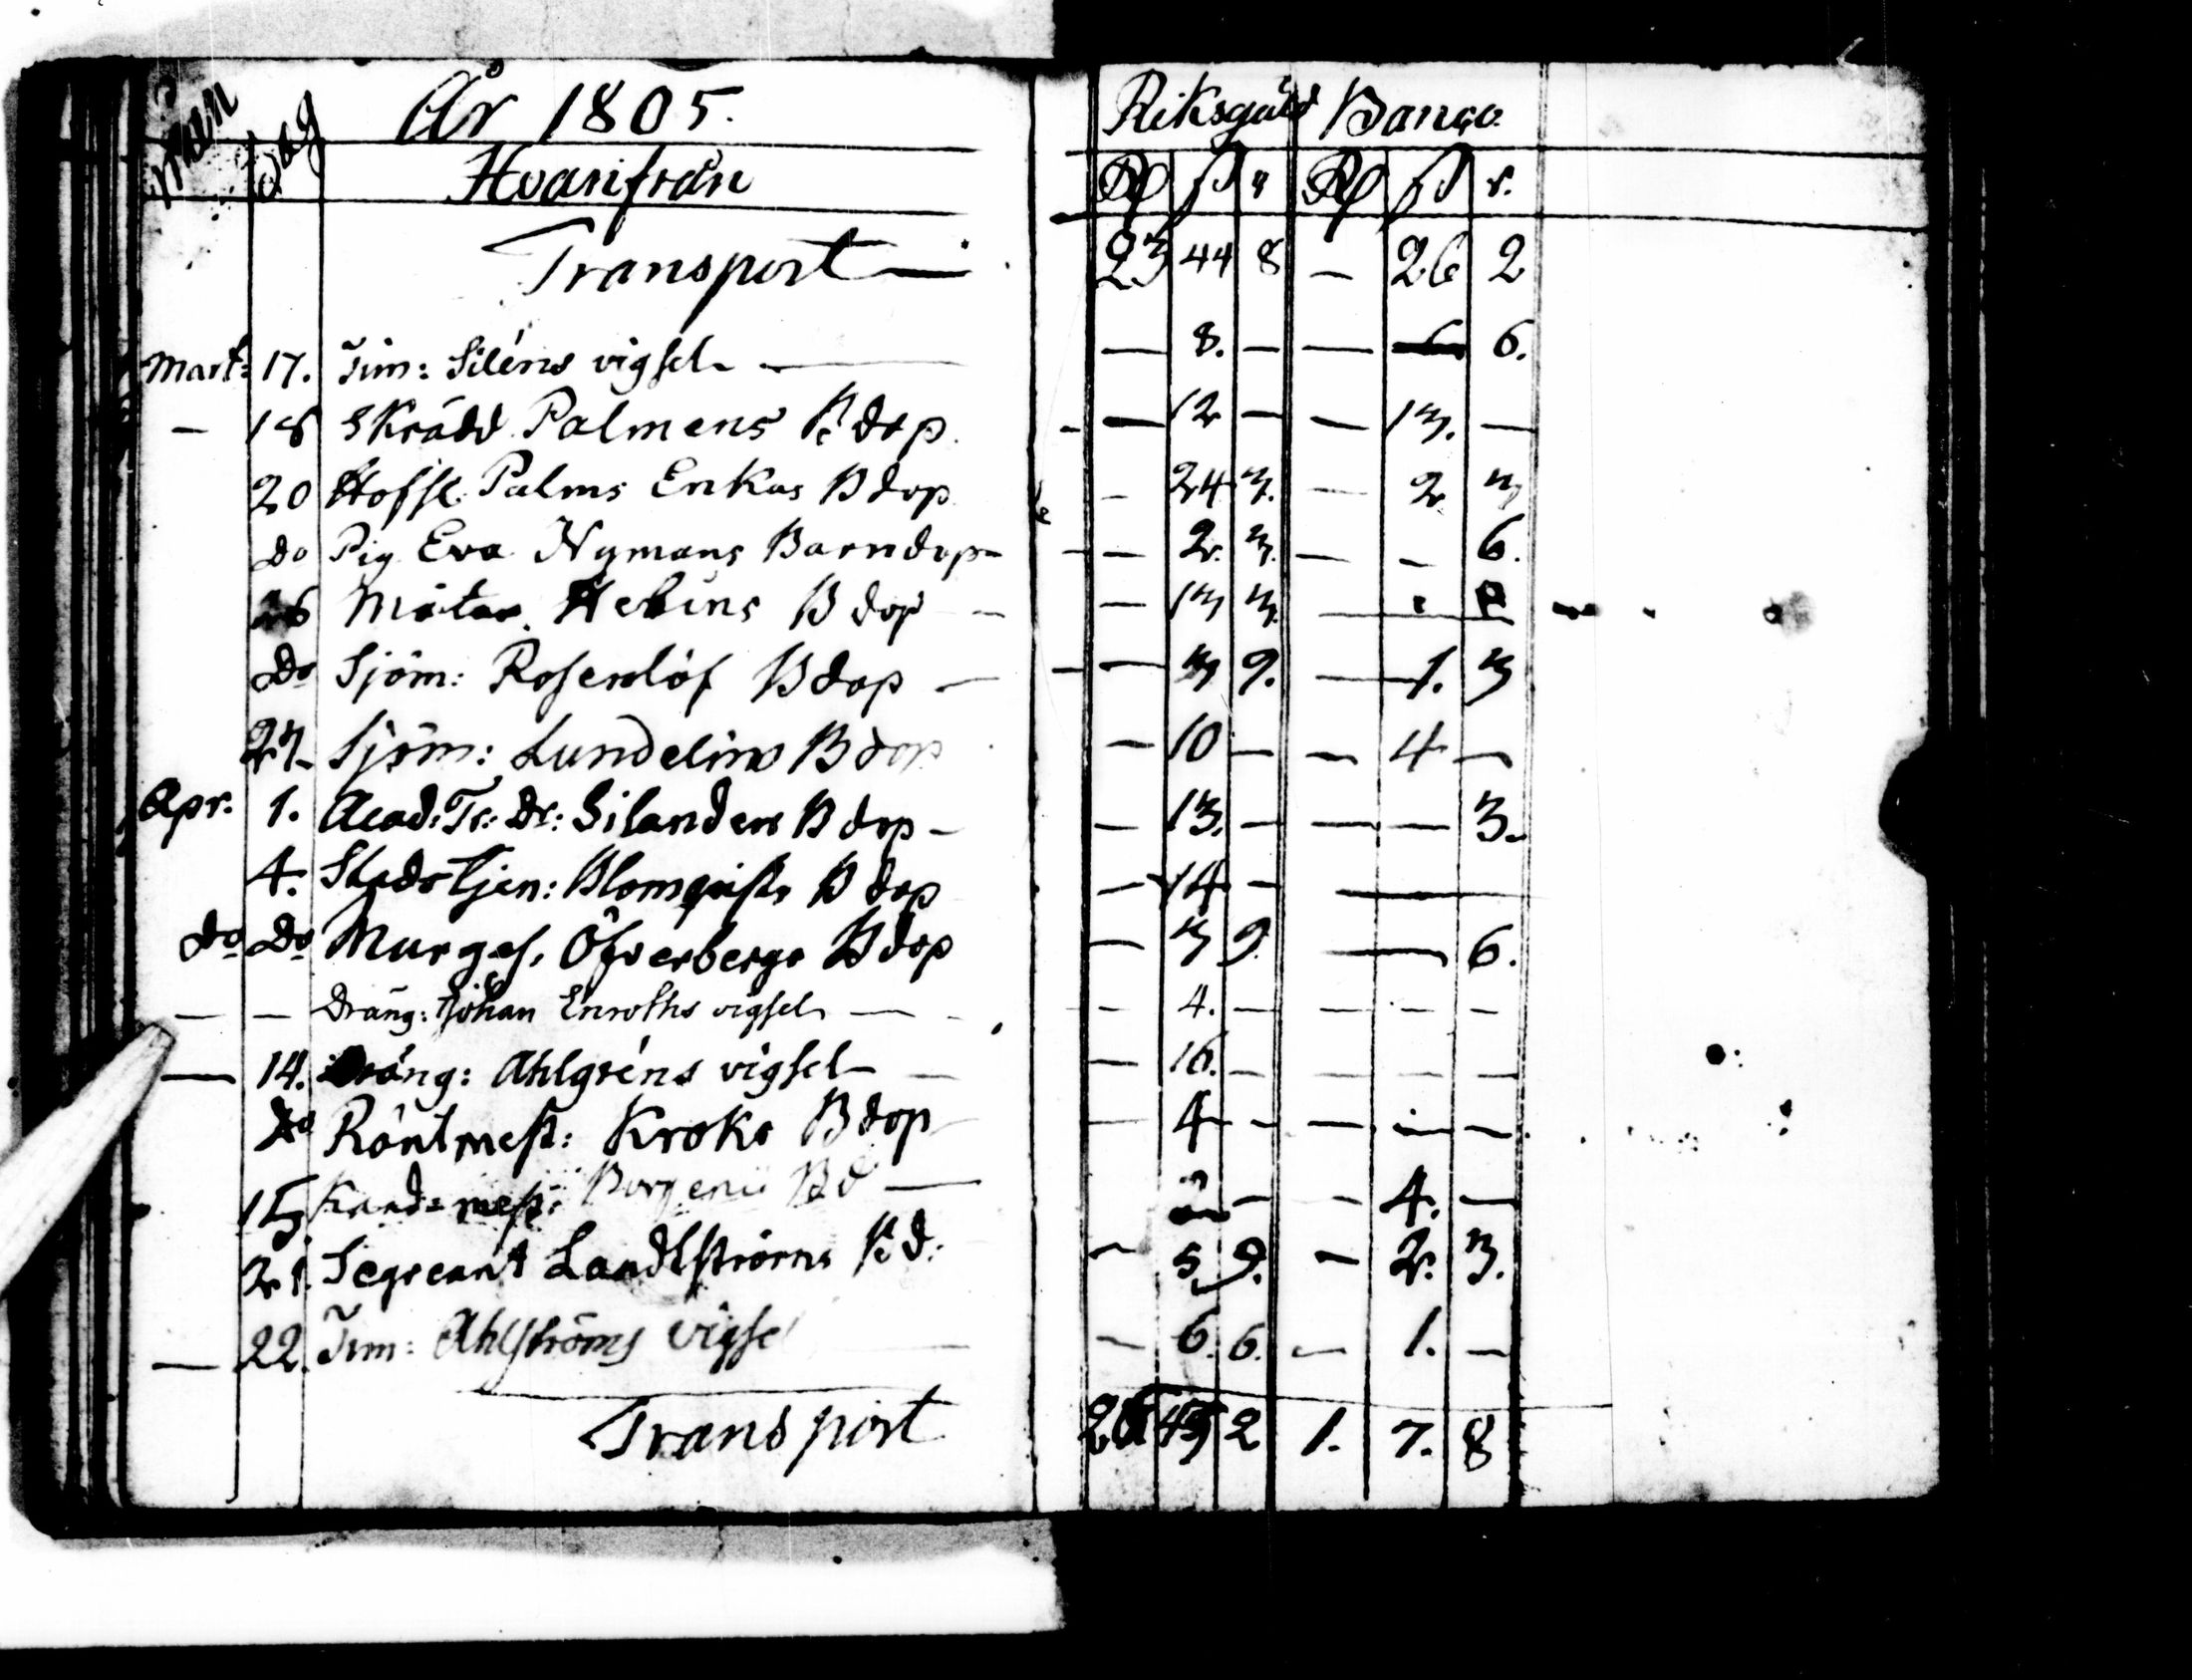 Mån Dag År 1805. Riksgäld Banco.
Hvarifrån Rd ß r Rd ß r.
Transport — 23 44 8 — 26 2
Mart: 17. Tim: Siléns vigsel — — 8. — — — 6.
— 18 Skrädd. Palmens B dop. — 12 — — 13. —
20 Hofsl. Palms Enkas B dop — 24 3. — 2 3
do Pig. Eva Nymans Barndop — — 2. 3. — — 6.
26 Mätar. Helins B dop — — 13 3. —
Do Sjöm: Rosenlöf B dop — — 3 9. — 1. 3
27. Sjöm: Lundelins B dop — 10 — — 4 —
Apr. 1. Acad: Tr: Dr: Silanders B dop — — 13. — — — 3.
4. Stads Tjen: Blomqvists B dop — 14 — —
do Do Murges. Öfverbergs B dop — 3 9. — 6.
— — Dräng: Johan Enroths vigsel — — 4. — — — —
— 14. Dräng: Ahlgréns vigsel — — 16. — — — —
Do Räntmest: Kroks B dop — 4 — — — —
15 mest: B d — — — 4. —
21. Sergeant Landtströms B d: — 5 9. — 2. 3.
— 22. Tim: Ahlströms vigsel — 6. 6. — 1. —
Transport 26 45 2 1. 7. 8